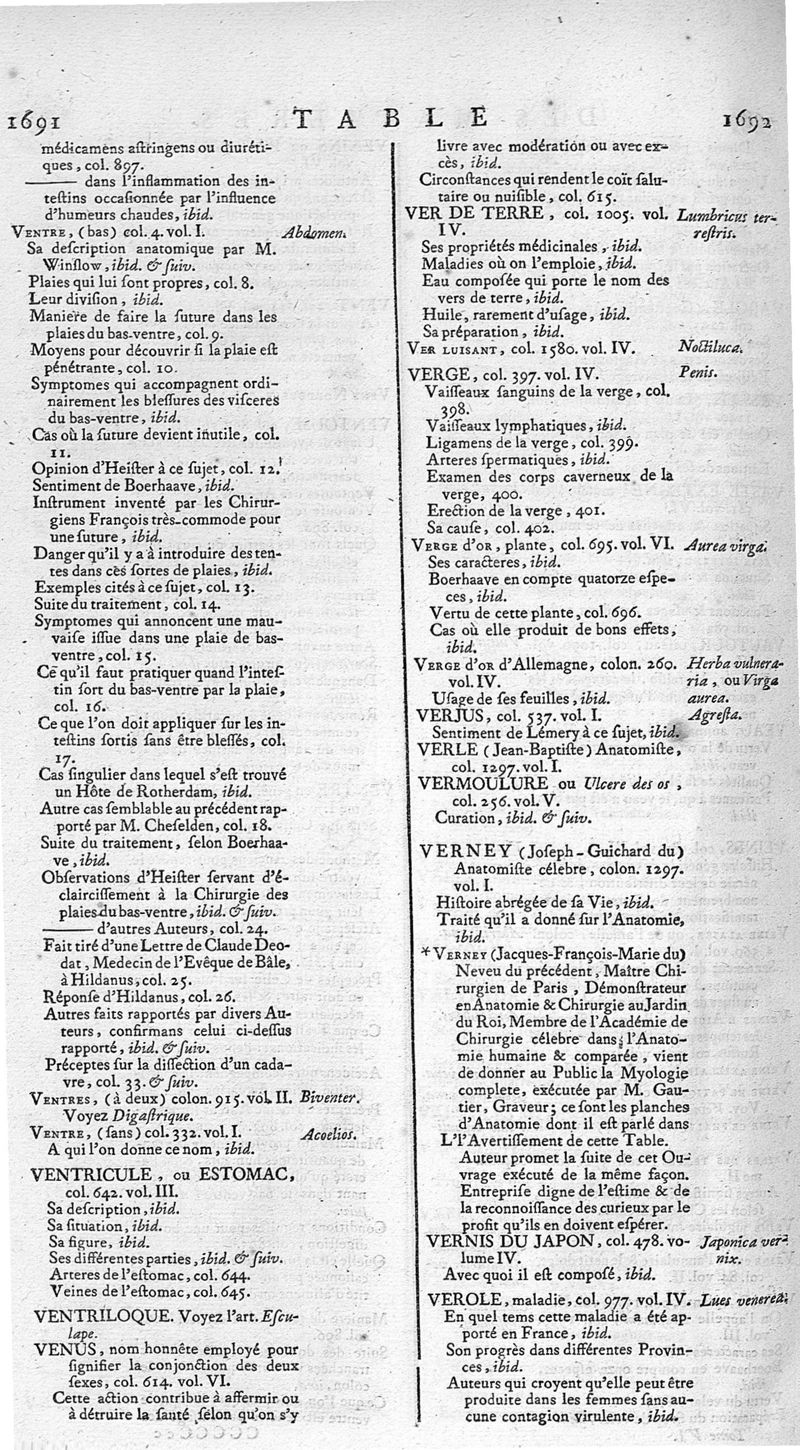 1691 TABLE 1692
médicamens aſtringens ou diuréti-
ques, col. 897.
——— dans l'inflammation des in-
teſtins occaſionnée par l'influence
d'humeurs chaudes, ibid.
VENTRE, (bas) col. 4. vol. I. Abdomen.
Sa deſcription anatomique par M.
Winſlow, ibid. & ſuiv.
Plaies qui lui ſont propres, col. 8.
Leur diviſion, ibid.
Maniere de faire la ſuture dans les
plaies du bas-ventre, col. 9.
Moyens pour découvrir ſi la plaie eſt
pénétrante, col. 10.
Symptomes qui accompagnent ordi-
nairement les bleſſures des viſceres
du bas-ventre, ibid.
Cas où la ſuture devient inutile, col.
11.
Opinion d'Heiſter à ce ſujet, col. 12.
Sentiment de Boerhaave, ibid.
Inſtrument inventé par les Chirur-
giens François très-commode pour
une ſuture, ibid.
Danger qu'il y a à introduire des ten-
tes dans ces ſortes de plaies, ibid.
Exemples cités à ce ſujet, col. 13.
Suite du traitement, col. 14.
Symptomes qui annoncent une mau-
vaiſe iſſue dans une plaie de bas-
ventre, col. 15.
Ce qu'il faut pratiquer quand l'inteſ-
tin ſort du bas-ventre par la plaie,
col. 16.
Ce que l'on doit appliquer ſur les in-
teſtins ſortis ſans être bleſſés, col.
17.
Cas ſingulier dans lequel s'eſt trouvé
un Hôte de Rotherdam, ibid.
Autre cas ſemblable au précédent rap-
porté par M. Cheſelden, col. 18.
Suite du traitement, ſelon Boerhaa-
ve, ibid.
Obſervations d'Heiſter ſervant d'é-
clairciſſement à la Chirurgie des
plaies du bas-ventre, ibid. & ſuiv.
——— d'autres Auteurs, col. 24.
Fait tiré d'une Lettre de Claude Deo-
dat, Medecin de l'Evêque de Bâle,
à Hildanus, col. 25.
Réponſe d'Hildanus, col. 26.
Autres faits rapportés par divers Au-
teurs, confirmans celui ci-deſſus
rapporté, ibid. & ſuiv.
Préceptes ſur la diſſection d'un cada-
vre, col. 33. & ſuiv.
VENTRES, (à deux) colon. 915. vol. II. Biventer.
Voyez Digaſtrique.
VENTRE, (ſans) col. 332. vol. I. Acoelios.
A qui l'on donne ce nom, ibid.
VENTRICULE, ou ESTOMAC,
col. 642. vol. III.
Sa deſcription, ibid.
Sa ſituation, ibid.
Sa figure, ibid.
Ses différentes parties, ibid. & ſuiv.
Arteres de l'eſtomac, col. 644.
Veines de l'eſtomac, col. 645.
VENTRILOQUE. Voyez l'art. Eſcu-
lape.
VENUS, nom honnête employé pour
ſignifier la conjonction des deux
ſexes, col. 614. vol. VI.
Cette action contribue à affermir ou
à détruire la ſanté ſelon qu'on s'y
livre avec modération ou avec ex-
cès, ibid.
Circonſtances qui rendent le coït ſalu-
taire ou nuiſible, col. 615.
VER DE TERRE, col. 1005. vol. Lumbricus ter-
IV. reſtris.
Ses propriétés médicinales, ibid.
Maladies où on l'emploie, ibid.
Eau compoſée qui porte le nom des
vers de terre, ibid.
Huile, rarement d'uſage, ibid.
Sa préparation, ibid.
VER LUISANT, col. 1580. vol. IV. Noctiluca.
VERGE, col. 397. vol. IV. Penis.
Vaiſſeaux ſanguins de la verge, col.
398.
Vaiſſeaux lymphatiques, ibid.
Ligamens de la verge, col. 399.
Arteres ſpermatiques, ibid.
Examen des corps caverneux de la
verge, 400.
Erection de la verge, 401.
Sa cauſe, col. 402.
VERGE D'OR, plante, col. 695. vol. VI. Aurea virga.
Ses caracteres, ibid.
Boerhaave en compte quatorze eſpe-
ces, ibid.
Vertu de cette plante, col. 696.
Cas où elle produit de bons effets,
ibid.
VERGE D'OR d'Allemagne, colon. 260. Herba vulnera-
vol. IV. ria, ou Virga
Uſage de ſes feuilles, ibid. aurea.
VERJUS, col. 537. vol. I. Agreſta.
Sentiment de Lémery à ce ſujet, ibid.
VERLE (Jean-Baptiſte) Anatomiſte,
col. 1297. vol. I.
VERMOULURE ou Ulcere des os,
col. 256. vol. V.
Curation, ibid. & ſuiv.
VERNEY (Joſeph-Guichard du)
Anatomiſte célebre, colon. 1297.
vol. I.
Hiſtoire abrégée de ſa Vie, ibid.
Traité qu'il a donné ſur l'Anatomie,
ibid.
*VERNEY (Jacques-François-Marie du)
Neveu du précédent, Maître Chi-
rurgien de Paris, Démonſtrateur
en Anatomie & Chirurgie au Jardin
du Roi, Membre de l'Académie de
Chirurgie célebre dans l'Anato-
mie humaine & comparée, vient
de donner au Public la Myologie
complete, exécutée par M. Gau-
tier, Graveur; ce ſont les planches
d'Anatomie dont il eſt parlé dans
L'l'Avertiſſement de cette Table.
Auteur promet la ſuite de cet Ou-
vrage exécuté de la même façon.
Entrepriſe digne de l'eſtime & de
la reconnoiſſance des curieux par le
profit qu'ils en doivent eſpérer.
VERNIS DU JAPON, col. 478. vo- Japonica ver-
lume IV. nix.
Avec quoi il eſt compoſé, ibid.
VEROLE, maladie, col. 977. vol. IV. Lues venerea.
En quel tems cette maladie a été ap-
porté en France, ibid.
Son progrès dans différentes Provin-
ces, ibid.
Auteurs qui croyent qu'elle peut être
produite dans les femmes ſans au-
cune contagion virulente, ibid.